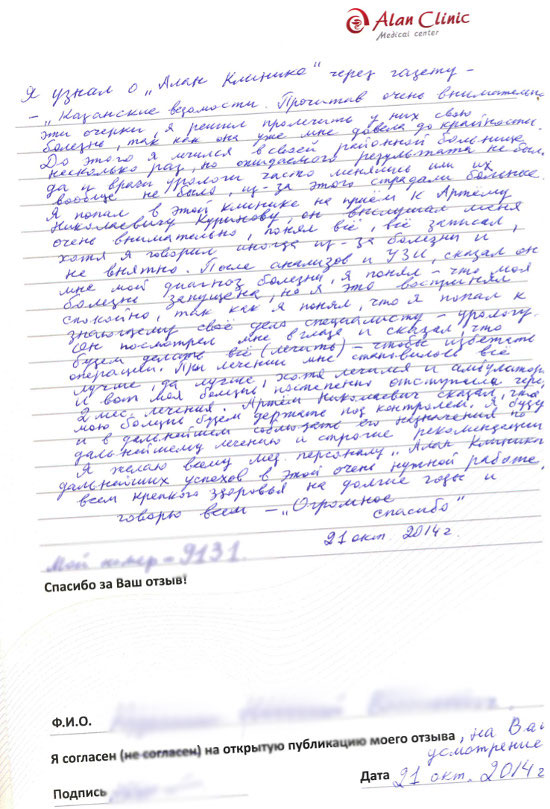 Alan Clinic
Medical center
Я узнал о „Алан Клинике" через газету -
- „Казанские ведомости. Прочитав очень внимательно
эти очерки, я решил пролечить у них свою
болезнь, так как она уже мне довела до крайности.
До этого я лечился в своей районной больнице
несколько раз, но ожидаемого результата не было,
да и врачи урологи часто менялись или их
вообще не было, из-за этого страдали больные.
Я попал в этой клинике на приём к Артёму
Николаевичу Куринову, он выслушал меня
очень внимательно, понял всё, всё записал,
хотя я говорил иногда из-за болезни и
не внятно. После анализов и УЗИ, сказал он
мне мой диагноз болезни, я понял - что моя
болезнь запущена, но я это воспринял
спокойно, так как я понял, что я попал к
знающему своё дело специалисту - урологу.
Он посмотрел мне в глаза и сказал, что
будем делать всё (лечить) - чтобы избежать
операции. При лечении мне становилось всё
лучше, да лучше, хотя лечился и амбулаторно
и вот моя болезнь постепенно отступила через
2 мес. лечения. Артём Николаевич сказал, что
мою болезнь будем держать под контролем. Я буду
и в дальнейшем соблюдать его назначения по
дальнейшему лечению и строгие рекомендации
Я желаю всему мед. персоналу „Алан Клиники
дальнейших успехов в этой очень нужной работе,
всем крепкого здоровья на долгие годы и
говорю всем - „Огромное
спасибо"
21 окт. 2014 г.
Мой номер = 9131.
Спасибо за Ваш отзыв!
Ф.И.О.
Я согласен (не согласен) на открытую публикацию моего отзыва, на Ваше
усмотрение
Подпись
Дата 21 окт. 2014 г